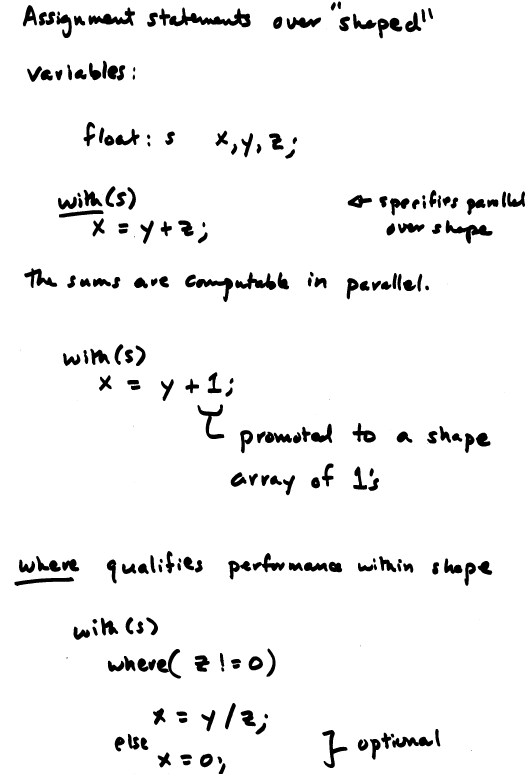 Assignment statements over "shaped"
variables:
float: s x, y, z;
with(s)
x = y + z; ← specifies parallel
over shape
The sums are computable in parallel.
with(s)
x = y + 1;
promoted to a shape
array of 1's
where qualifies performance within shape
with(s)
where( z != 0)
x = y / z;
else
x = 0; } optional